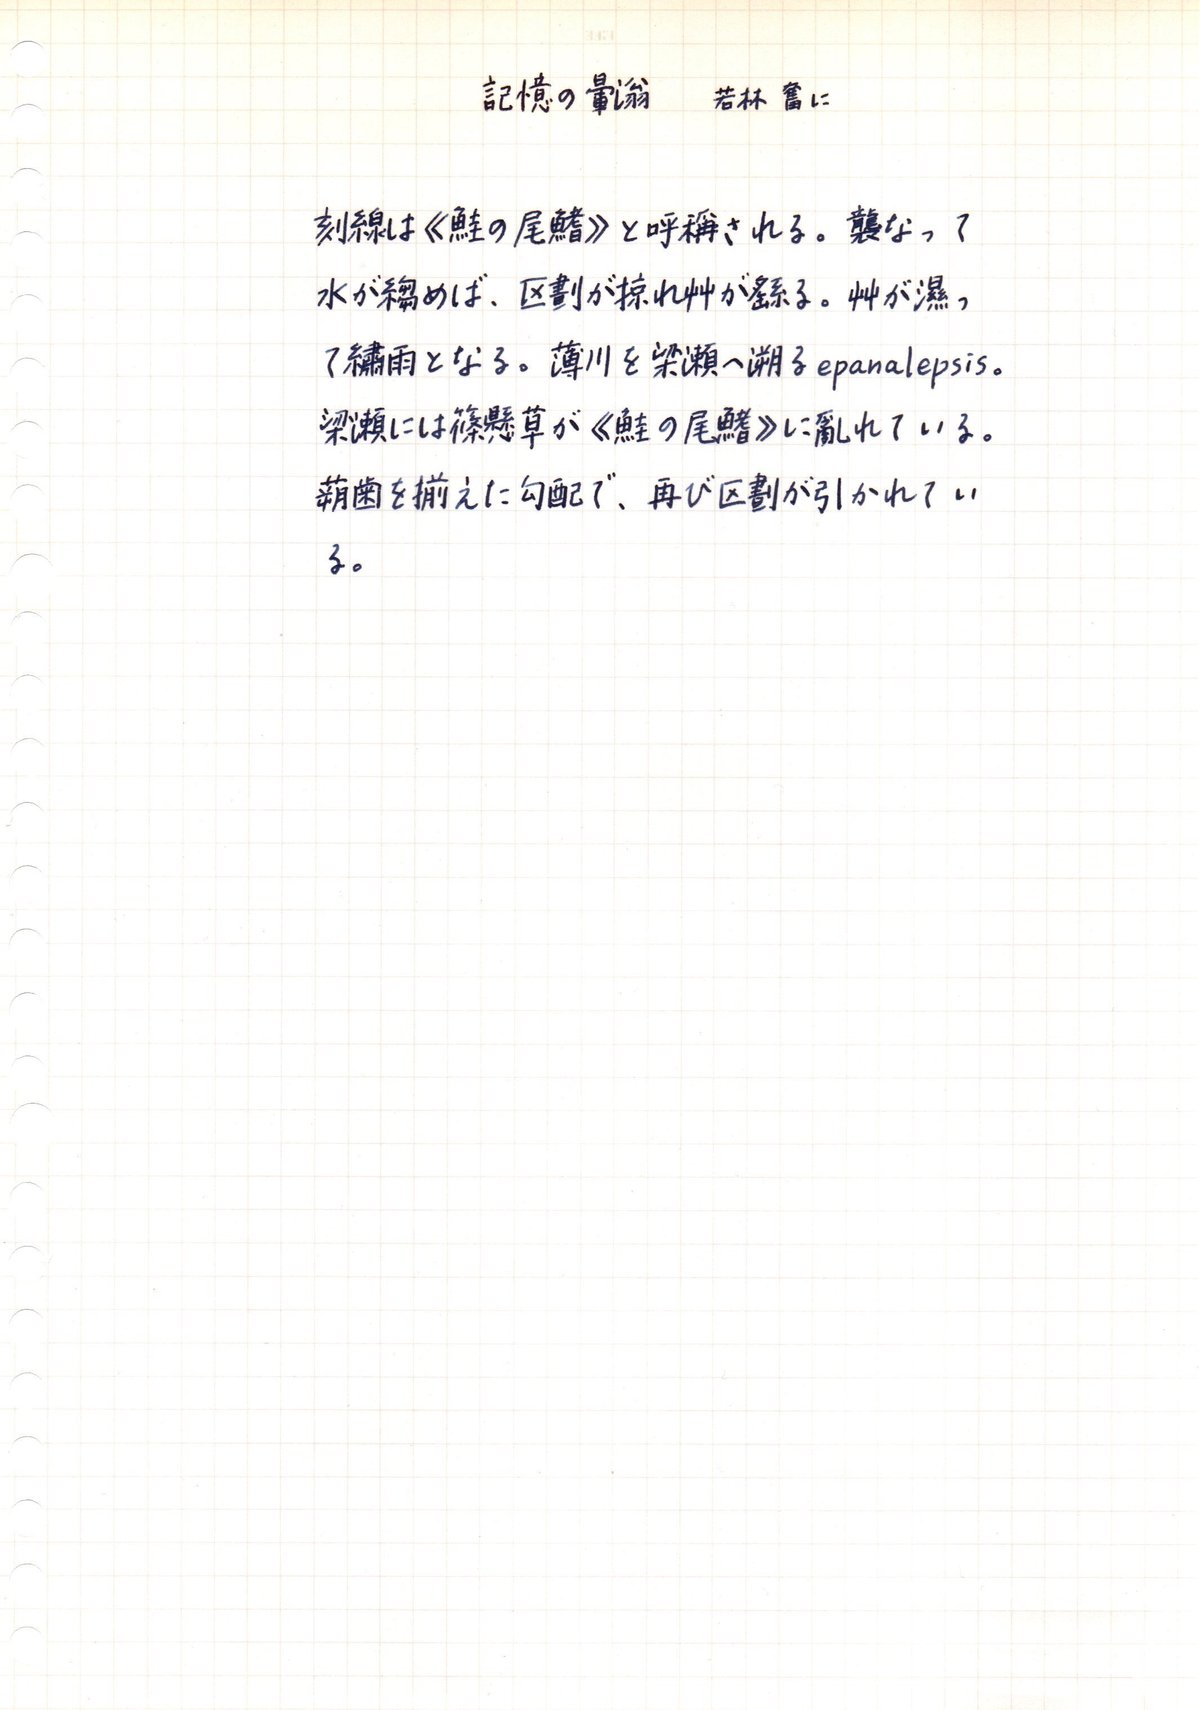 記憶の暈滃 若林 奮に
刻線は《鮭の尾鰭》と呼稱される。襲なって
水が縐めば、区劃が掠れ艸が繇る。艸が濕っ
て繡雨となる。薄川を梁瀬へ溯るepanalepsis。
梁瀬には篠懸草が《鮭の尾鰭》に亂れている。
萠歯を揃えた勾配で、再び区劃が引かれてい
る。